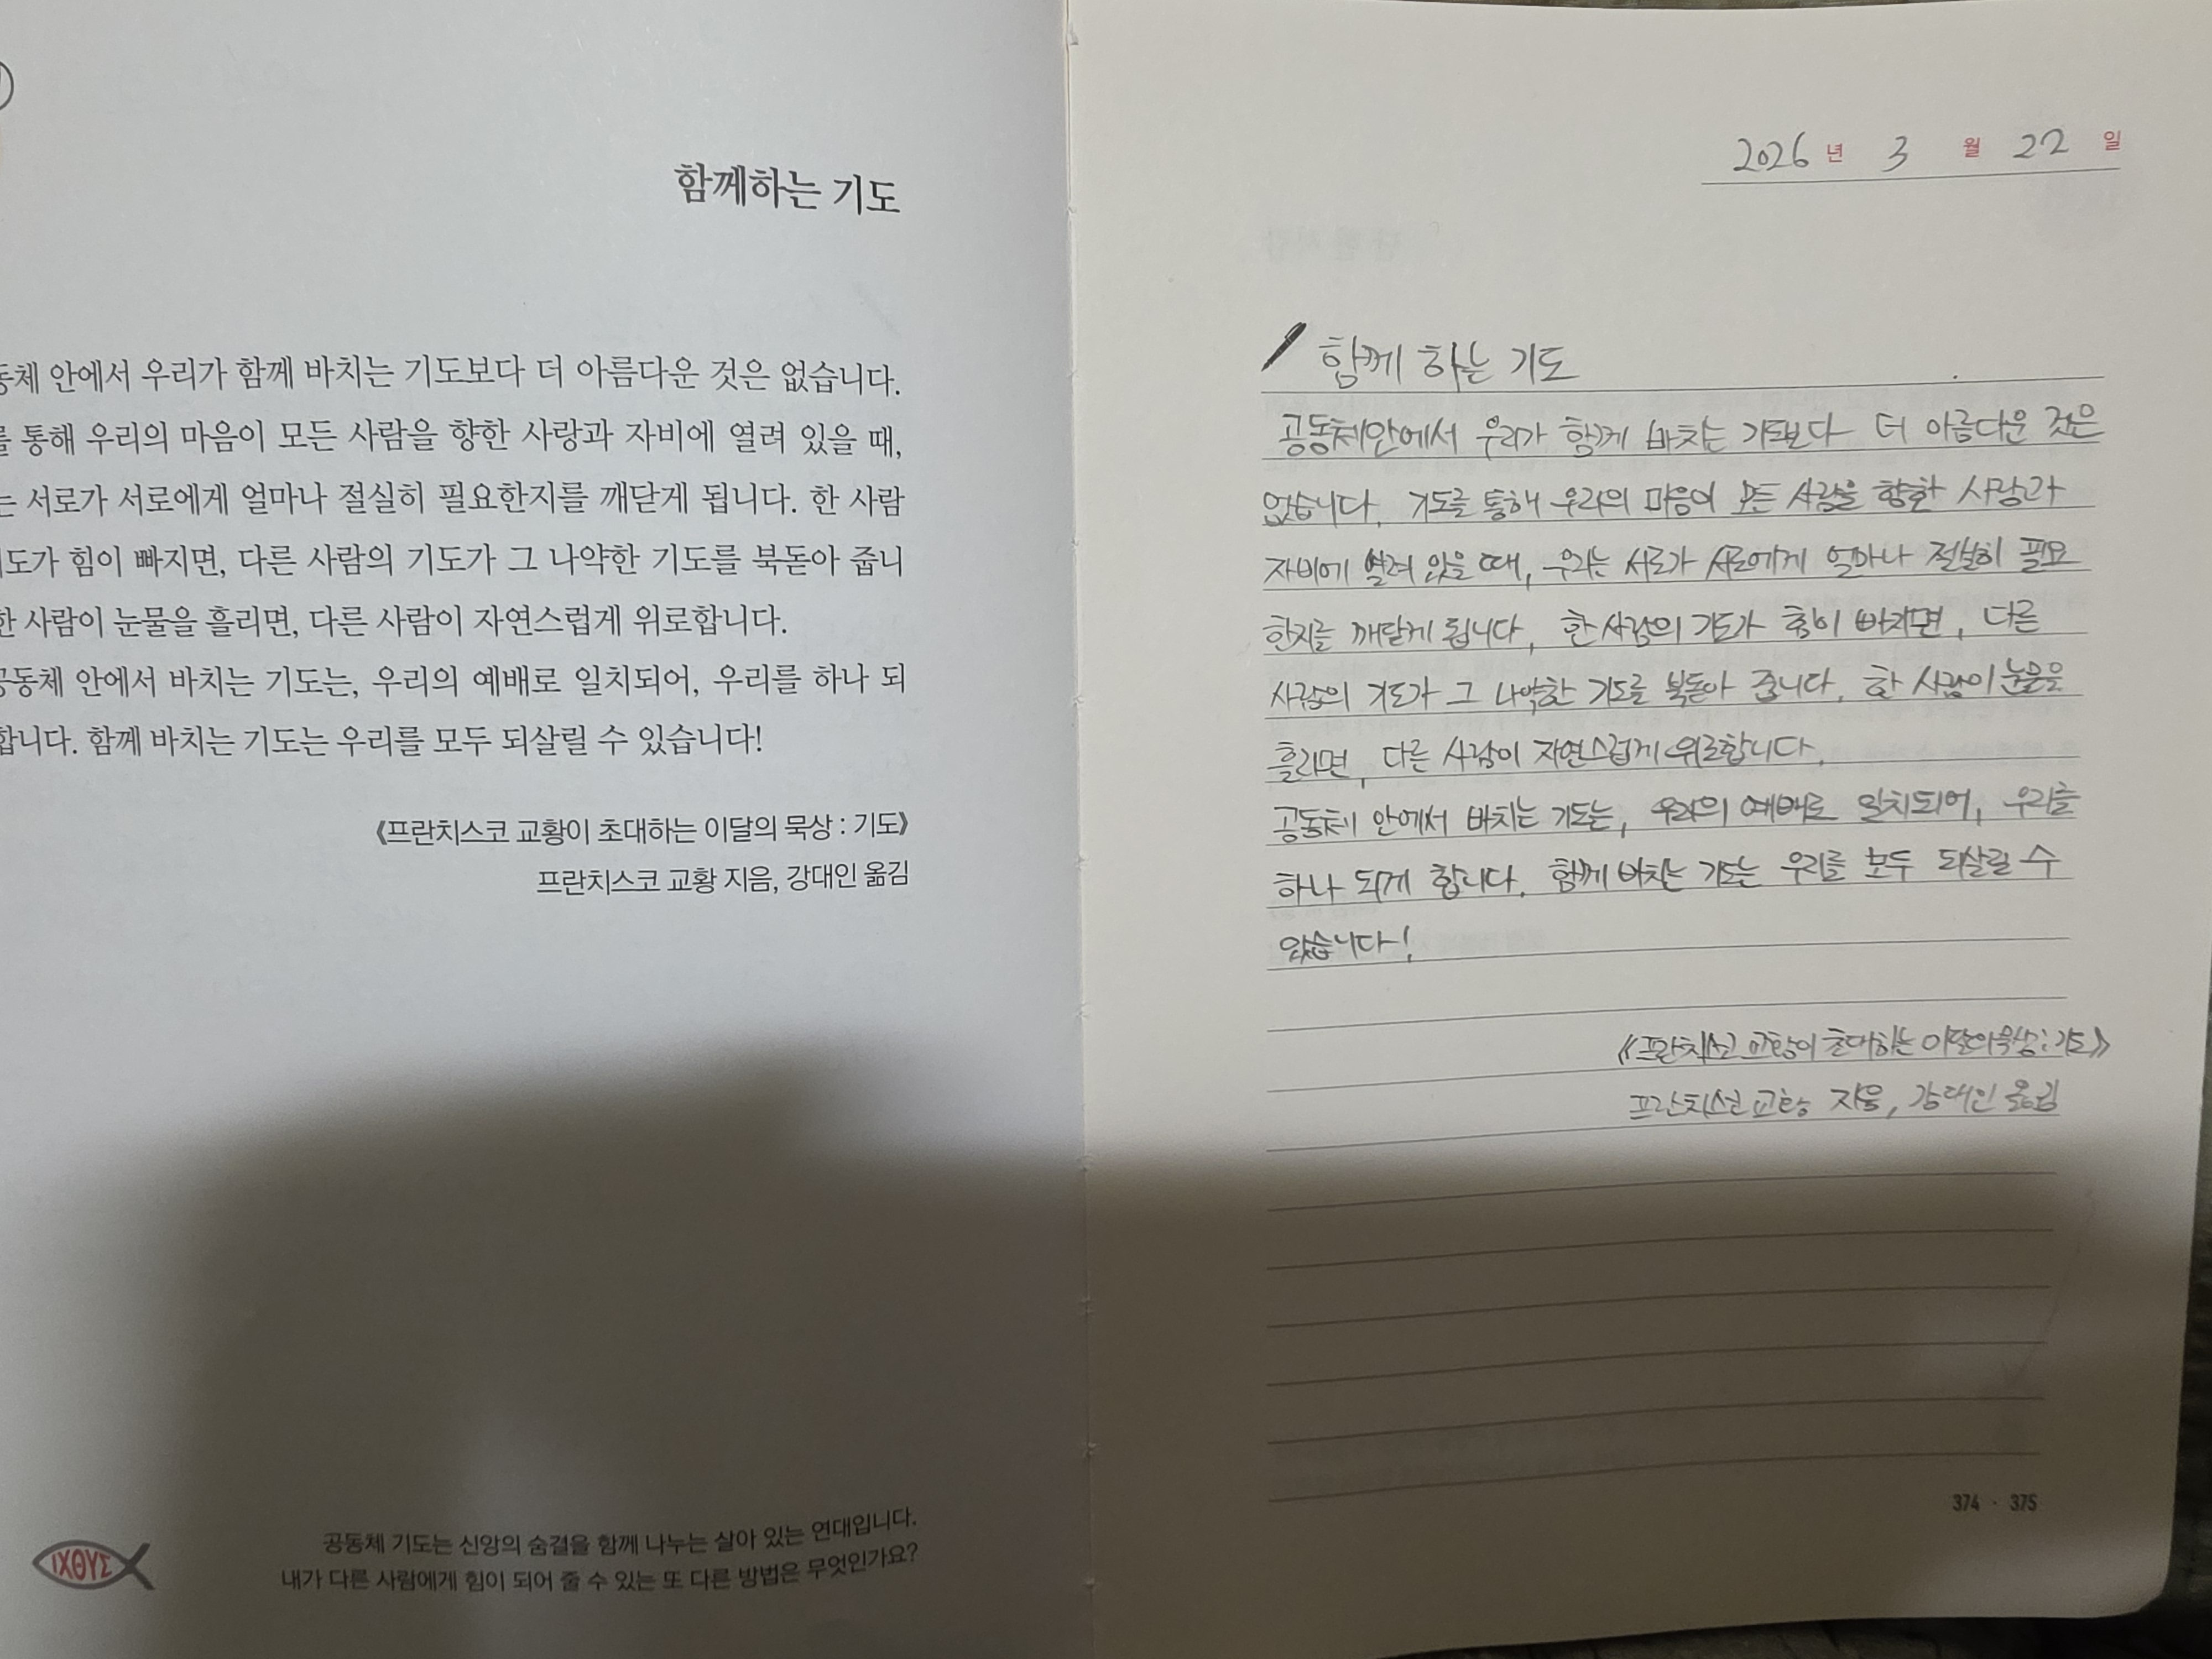 함께하는 기도
동체 안에서 우리가 함께 바치는 기도보다 더 아름다운 것은 없습니다.
를 통해 우리의 마음이 모든 사람을 향한 사랑과 자비에 열려 있을 때,
는 서로가 서로에게 얼마나 절실히 필요한지를 깨닫게 됩니다. 한 사람
도가 힘이 빠지면, 다른 사람의 기도가 그 나약한 기도를 북돋아 줍니
한 사람이 눈물을 흘리면, 다른 사람이 자연스럽게 위로합니다.
공동체 안에서 바치는 기도는, 우리의 예배로 일치되어, 우리를 하나 되
합니다. 함께 바치는 기도는 우리를 모두 되살릴 수 있습니다!
《프란치스코 교황이 초대하는 이달의 묵상 : 기도》
프란치스코 교황 지음, 강대인 옮김
ΙΧΘΥΣ
공동체 기도는 신앙의 숨결을 함께 나누는 살아 있는 연대입니다.
내가 다른 사람에게 힘이 되어 줄 수 있는 또 다른 방법은 무엇인가요?
2026년 3월 22일
함께 하는 기도
공동체안에서 우리가 함께 바치는 기도보다 더 아름다운 것은
없습니다. 기도를 통해 우리의 마음이 모든 사람을 향한 사랑과
자비에 열려 있을 때, 우리는 서로가 서로에게 얼마나 절실히 필요
한지를 깨닫게 됩니다. 한 사람의 기도가 힘이 빠지면, 다른
사람의 기도가 그 나약한 기도를 북돋아 줍니다. 한 사람이 눈물을
흘리면, 다른 사람이 자연스럽게 위로합니다.
공동체 안에서 바치는 기도는, 우리의 예배로 일치되어, 우리를
하나 되게 합니다. 함께 바치는 기도는 우리를 모두 되살릴 수
있습니다!
《프란치스코 교황이 초대하는 이달의 묵상 : 기도》
프란치스코 교황 지음, 강대인 옮김
374 · 375